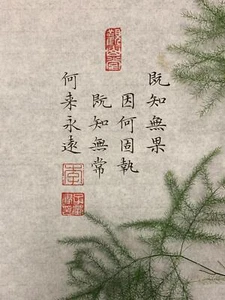 既知無果
因何固執
既知無常
何来永遠